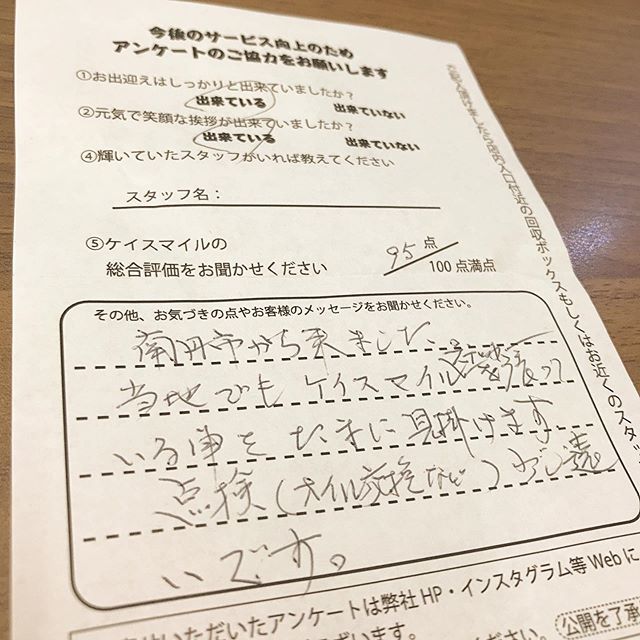 今後のサービス向上のため
アンケートのご協力をお願いします
①お出迎えはしっかりと出来ていましたか？
出来ている 出来ていない
②元気で笑顔な挨拶が出来ていましたか？
出来ている 出来ていない
④輝いていたスタッフがいれば教えてください
スタッフ名：
⑤ケイスマイルの
総合評価をお聞かせください
95点
100点満点
その他、お気づきの点やお客様のメッセージをお聞かせください。
南丹市から来ました。
当地でもケイスマイル を張って
いる車をたまに見掛けます
点検（オイル交換など）が少し遠
いです。
いただいたアンケートは弊社HP・インスタグラム等Webに
公開を了承
の回収ボックスもしくはお近くのスタッ